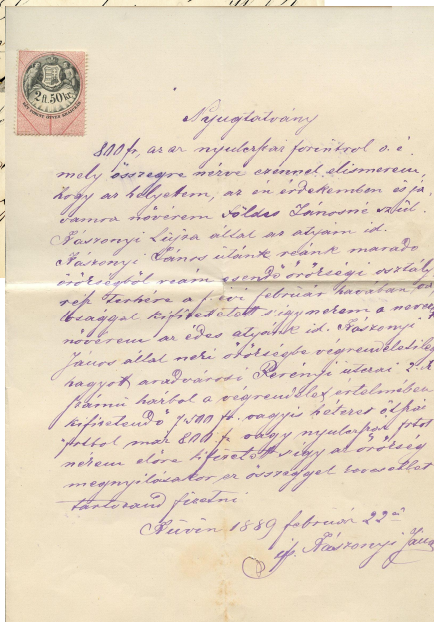 2 ft. 50 kr.
Nyugtatvány
800 fr, azaz nyulczszáz forintrol o. é.
mely összegre nézve ezennel elismerem,
hogy az helyettem, az én érdekemben és ja-
vamra nővérem Földes Jánosné szül.
Nászonyi Lujza által az atyám id.
Nászonyi János utánk reánk maradó
örökségből reám esendő örökségi osztály
rész terhére a f. évi február havában
kifizettetett s igy nevem a
nővérem az édes atyánk id. Nászonyi
János által neki örökségbe végrendeletileg
hagyott aradvárosi Perényi utczai 2.
számú házból a végrendelet értelmében
kifizetendő 7500 fr. vagyis hétezer ötszáz
ftból már 800 fr vagy nyulczszáz frtot
nékem előre kifizetett s igy az örökség
megnyilásakor ez összeggel kevesebbet
tartozand fizetni
1889 február 22én
ifj. Nászonyi János